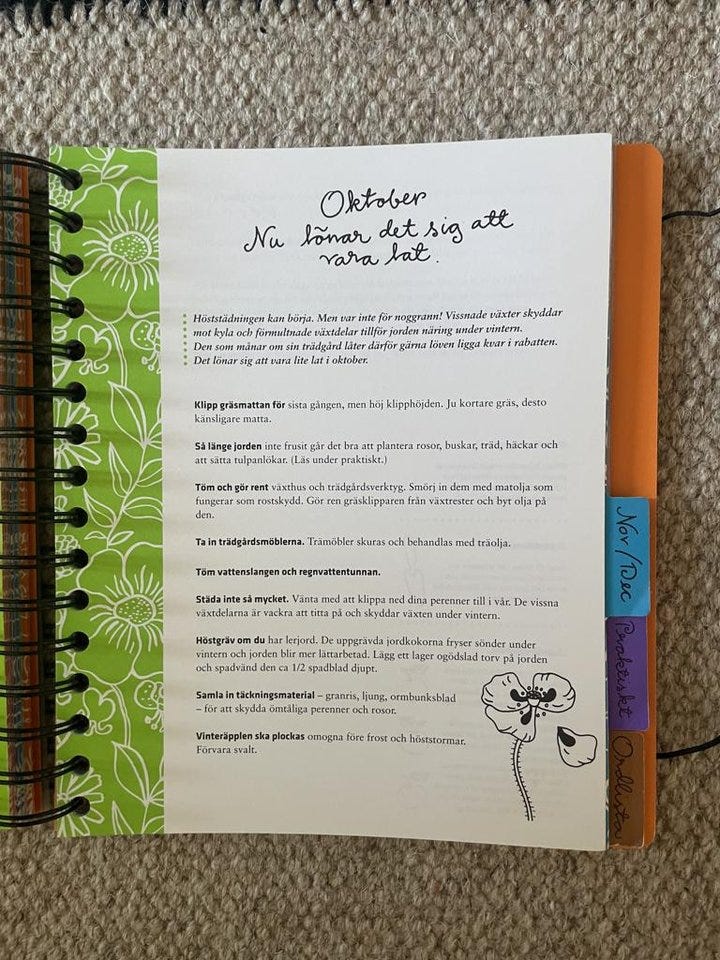 Oktober
Nu lönar det sig att
vara lat.
Höststädningen kan börja. Men var inte för noggrann! Vissnade växter skyddar
mot kyla och förmultnade växtdelar tillför jorden näring under vintern.
Den som månar om sin trädgård låter därför gärna löven ligga kvar i rabatten.
Det lönar sig att vara lite lat i oktober.
Klipp gräsmattan för sista gången, men höj klipphöjden. Ju kortare gräs, desto
känsligare matta.
Så länge jorden inte frusit går det bra att plantera rosor, buskar, träd, häckar och
att sätta tulpanlökar. (Läs under praktiskt.)
Töm och gör rent växthus och trädgårdsverktyg. Smörj in dem med matolja som
fungerar som rostskydd. Gör ren gräsklipparen från växtrester och byt olja på
den.
Ta in trädgårdsmöblerna. Trämöbler skuras och behandlas med träolja.
Töm vattenslangen och regnvattentunnan.
Städa inte så mycket. Vänta med att klippa ned dina perenner till i vår. De vissna
växtdelarna är vackra att titta på och skyddar växten under vintern.
Höstgräv om du har lerjord. De uppgrävda jordkokorna fryser sönder under
vintern och jorden blir mer lättarbetad. Lägg ett lager ogödslad torv på jorden
och spadvänd den ca 1/2 spadblad djupt.
Samla in täckningsmaterial – granris, ljung, ormbunksblad
– för att skydda ömtåliga perenner och rosor.
Vinteräpplen ska plockas omogna före frost och höststormar.
Förvara svalt.
Nov/Dec
Praktiskt
Ordlista